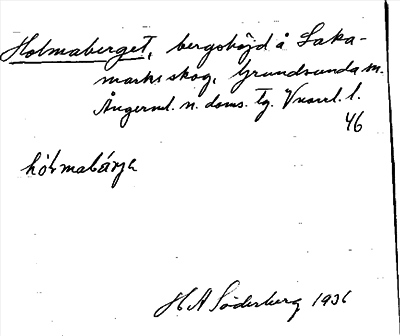 Holmaberget, bergshöjd å Laka-
marks skog, Grundsunda sn.
Ångerml. n. doms. Tg. Vnorrl. l.
46
hólmabárje
H A Söderberg 1936